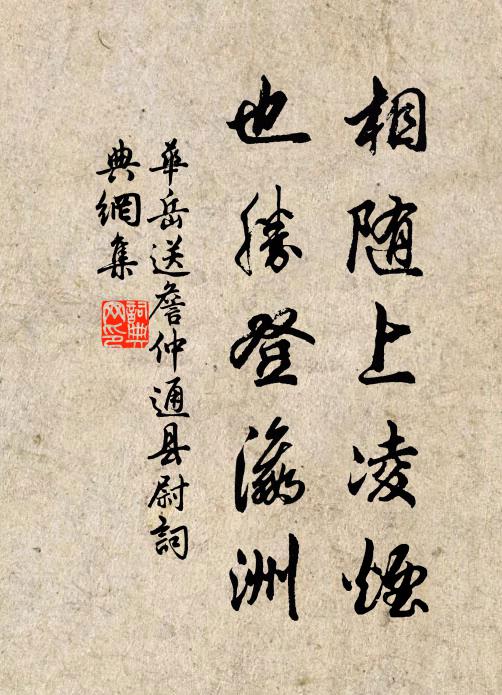 相随上凌煙
也勝登瀛洲
華岳送詹仲通县尉詞
典網集
詞典
网印